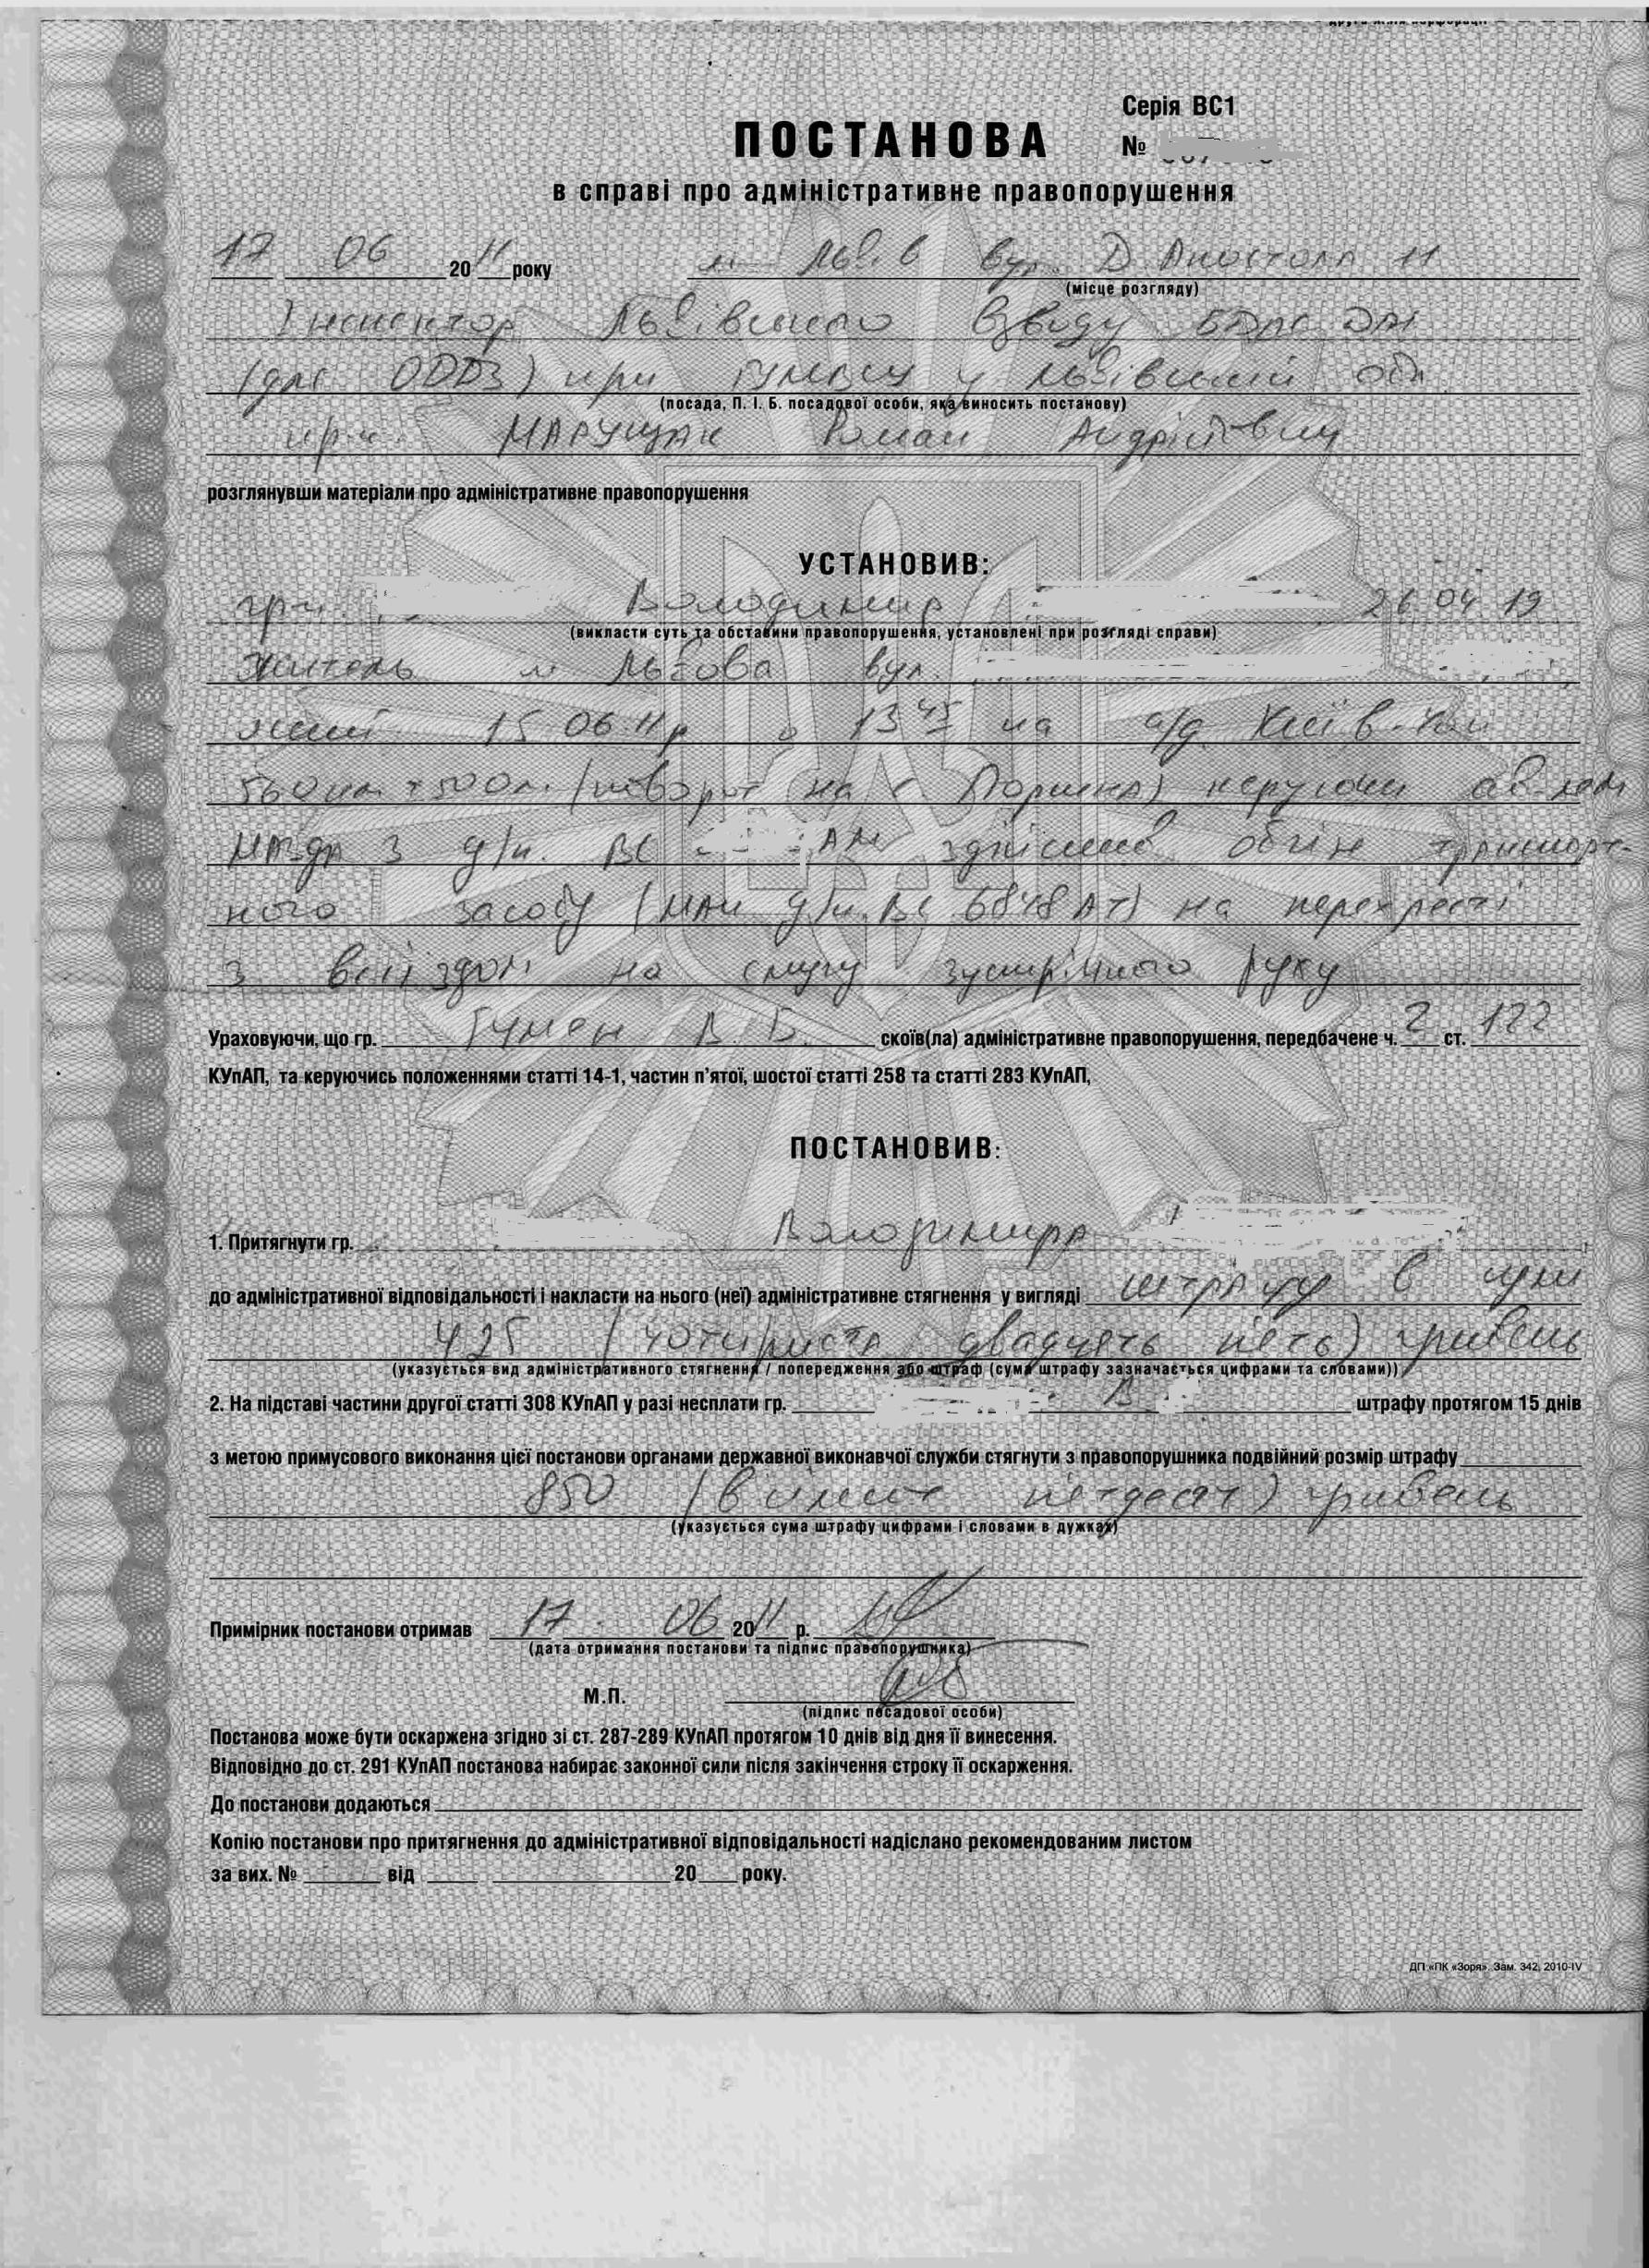 Серія ВС1
ПОСТАНОВА
№
в справі про адміністративне правопорушення
17 06 2011 року м Львів вул. Д Апостола 11
(місце розгляду)
Інспектор Львівського взводу БДПС ДАІ
(для ОДДЗ) при ГУМВСУ у Львівській обл
(посада, П. І. Б. посадової особи, яка виносить постанову)
пр-к. МАРУЩАК Роман Андрійович
розглянувши матеріали про адміністративне правопорушення
УСТАНОВИВ:
гр-н. Володимир 26 04 19
(викласти суть та обставини правопорушення, установлені при розгляді справи)
житель м Львова вул.
який 15 06 11р о 13 45 на а/д Київ-Чоп
560км +500м. (поворот на с Поршна) керуючи ав-лем
МАЗДА З д/н. ВС АМ здійснив обгін транспорт-
ного засобу (МАН д/н. ВС 6848 АТ) на перехресті
з виїздом на смугу зустрічного руху
Ураховуючи, що гр. В. Б. скоїв(ла) адміністративне правопорушення, передбачене ч. 2 ст. 122
КУпАП, та керуючись положеннями статті 14-1, частин п'ятої, шостої статті 258 та статті 283 КУпАП,
ПОСТАНОВИВ:
1. Притягнути гр. Володимира
до адміністративної відповідальності і накласти на нього (неї) адміністративне стягнення у вигляді штрафу в сумі
425 (чотириста двадцять п'ять) гривень
(указується вид адміністративного стягнення / попередження або штраф (сума штрафу зазначається цифрами та словами))
2. На підставі частини другої статті 308 КУпАП у разі несплати гр. В. штрафу протягом 15 днів
з метою примусового виконання цієї постанови органами державної виконавчої служби стягнути з правопорушника подвійний розмір штрафу
850 (вісімсот п'ятдесят) гривень
(указується сума штрафу цифрами і словами в дужках)
Примірник постанови отримав 17. 06 2011 р.
(дата отримання постанови та підпис правопорушника)
М.П.
(підпис посадової особи)
Постанова може бути оскаржена згідно зі ст. 287-289 КУпАП протягом 10 днів від дня її винесення.
Відповідно до ст. 291 КУпАП постанова набирає законної сили після закінчення строку її оскарження.
До постанови додаються
Копію постанови про притягнення до адміністративної відповідальності надіслано рекомендованим листом
за вих. № від 20 року.
ДП «ПК «Зоря». Зам. 342, 2010-IV